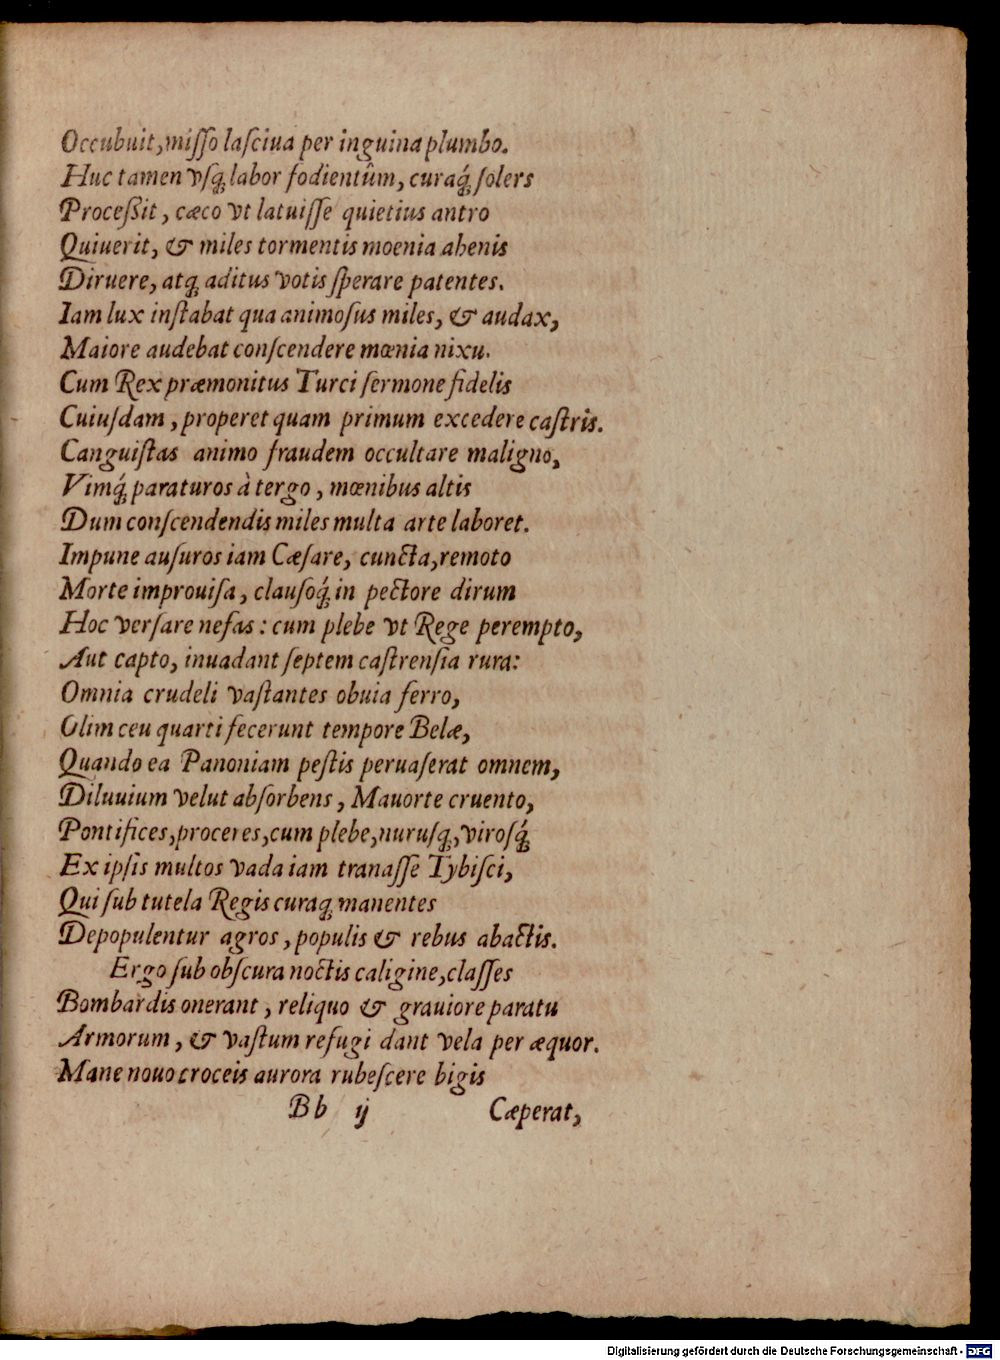 Occubuit, miſſo laſciua per inguina plumbo.
Huc tamen vſq́ꝫ labor fodientûm, curaq́ꝫ ſolers
Proceßit, cæco vt latuiſſe quietius antro
Quiuerit, & miles tormentis moenia ahenis
Diruere, atqꝫ aditus votis ſperare patentes.
Iam lux inſtabat qua animoſus miles, & audax,
Maiore audebat conſcendere mœnia nixu.
Cum Rex præmonitus Turci ſermone fidelis
Cuiuſdam, properet quam primum excedere caſtris.
Canguiſtas animo fraudem occultare maligno,
Vimq́ꝫ paraturos à tergo, mœnibus altis
Dum conſcendendis miles multa arte laboret.
Impune auſuros iam Cæſare, cuncta, remoto
Morte improuiſa, clauſoq́ꝫ in pectore dirum
Hoc verſare nefas: cum plebe vt Rege perempto,
Aut capto, inuadant ſeptem caſtrenſia rura:
Omnia crudeli vaſtantes obuia ferro,
Olim ceu quarti fecerunt tempore Belæ,
Quando ea Panoniam peſtis peruaſerat omnem,
Diluuium velut abſorbens, Mauorte cruento,
Pontifices, proceres, cum plebe, nuruſqꝫ, viroſq́ꝫ
Ex ipſis multos vada iam tranaſſe Tybiſci,
Qui ſub tutela Regis curaqꝫ manentes
Depopulentur agros, populis & rebus abactis.
Ergo ſub obſcura noctis caligine, claſſes
Bombardis onerant, reliquo & grauiore paratu
Armorum, & vaſtum refugi dant vela per æquor.
Mane nouo croceis aurora rubeſcere bigis
Bb ij Cæperat,
Digitalisierung gefördert durch die Deutsche Forschungsgemeinschaft - DFG